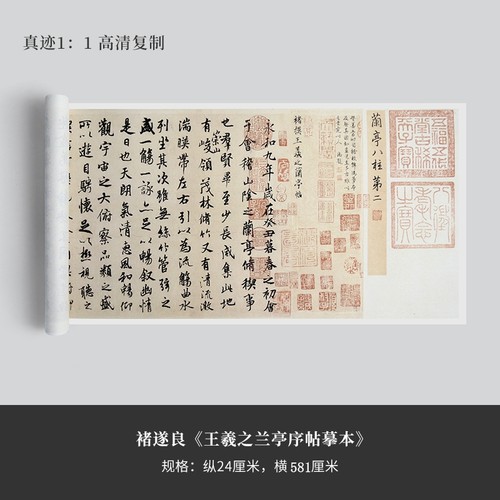 真迹1：1 高清复制
蘭亭八柱第二
褚摹王羲之蘭亭帖
永和九年歲在癸丑暮春之初會
于會稽山陰之蘭亭脩稧事
也群賢畢至少長咸集此地
有崇山峻領茂林脩竹又有清流激
湍暎帶左右引以為流觴曲水
列坐其次雖無絲竹管弦之
盛一觴一詠亦足以暢敘幽情
是日也天朗氣清惠風和暢仰
觀宇宙之大俯察品類之盛
所以遊目騁懷足以極視聽之
褚遂良《王羲之兰亭序帖摹本》
规格：纵24厘米，横581厘米